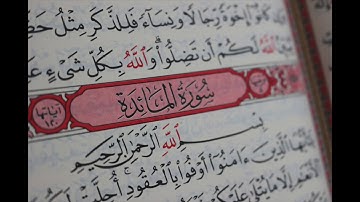 كَانُوٓا۟ إِخْوَةً رِّجَالًا وَنِسَآءً فَلِلذَّكَرِ مِثْلُ حَظِّ
ٱللَّهُ لَكُمْ أَن تَضِلُّوا۟ ۗ وَٱللَّهُ بِكُلِّ شَىْءٍ
سُورَةُ المَائِدَةِ
بِسْمِ ٱللَّهِ ٱلرَّحْمَٰنِ ٱلرَّحِيمِ
يَٰٓأَيُّهَا ٱلَّذِينَ ءَامَنُوٓا۟ أَوْفُوا۟ بِٱلْعُقُودِ ۚ أُحِلَّتْ
ٱلْأَنْعَٰمِ إِلَّا مَا يُتْلَىٰ عَلَيْكُمْ